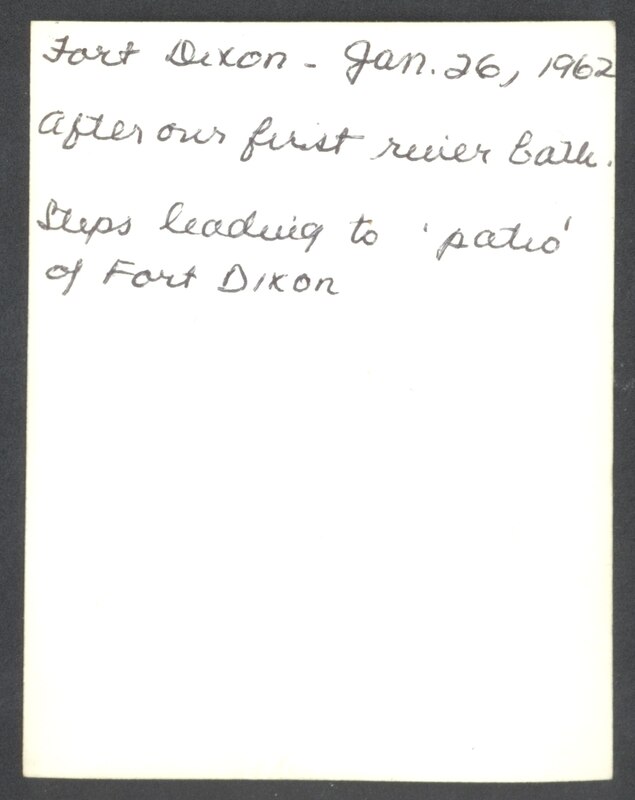 Fort Dixon - Jan. 26, 1962
After our first river bath.
Steps leading to 'patio'
of Fort Dixon